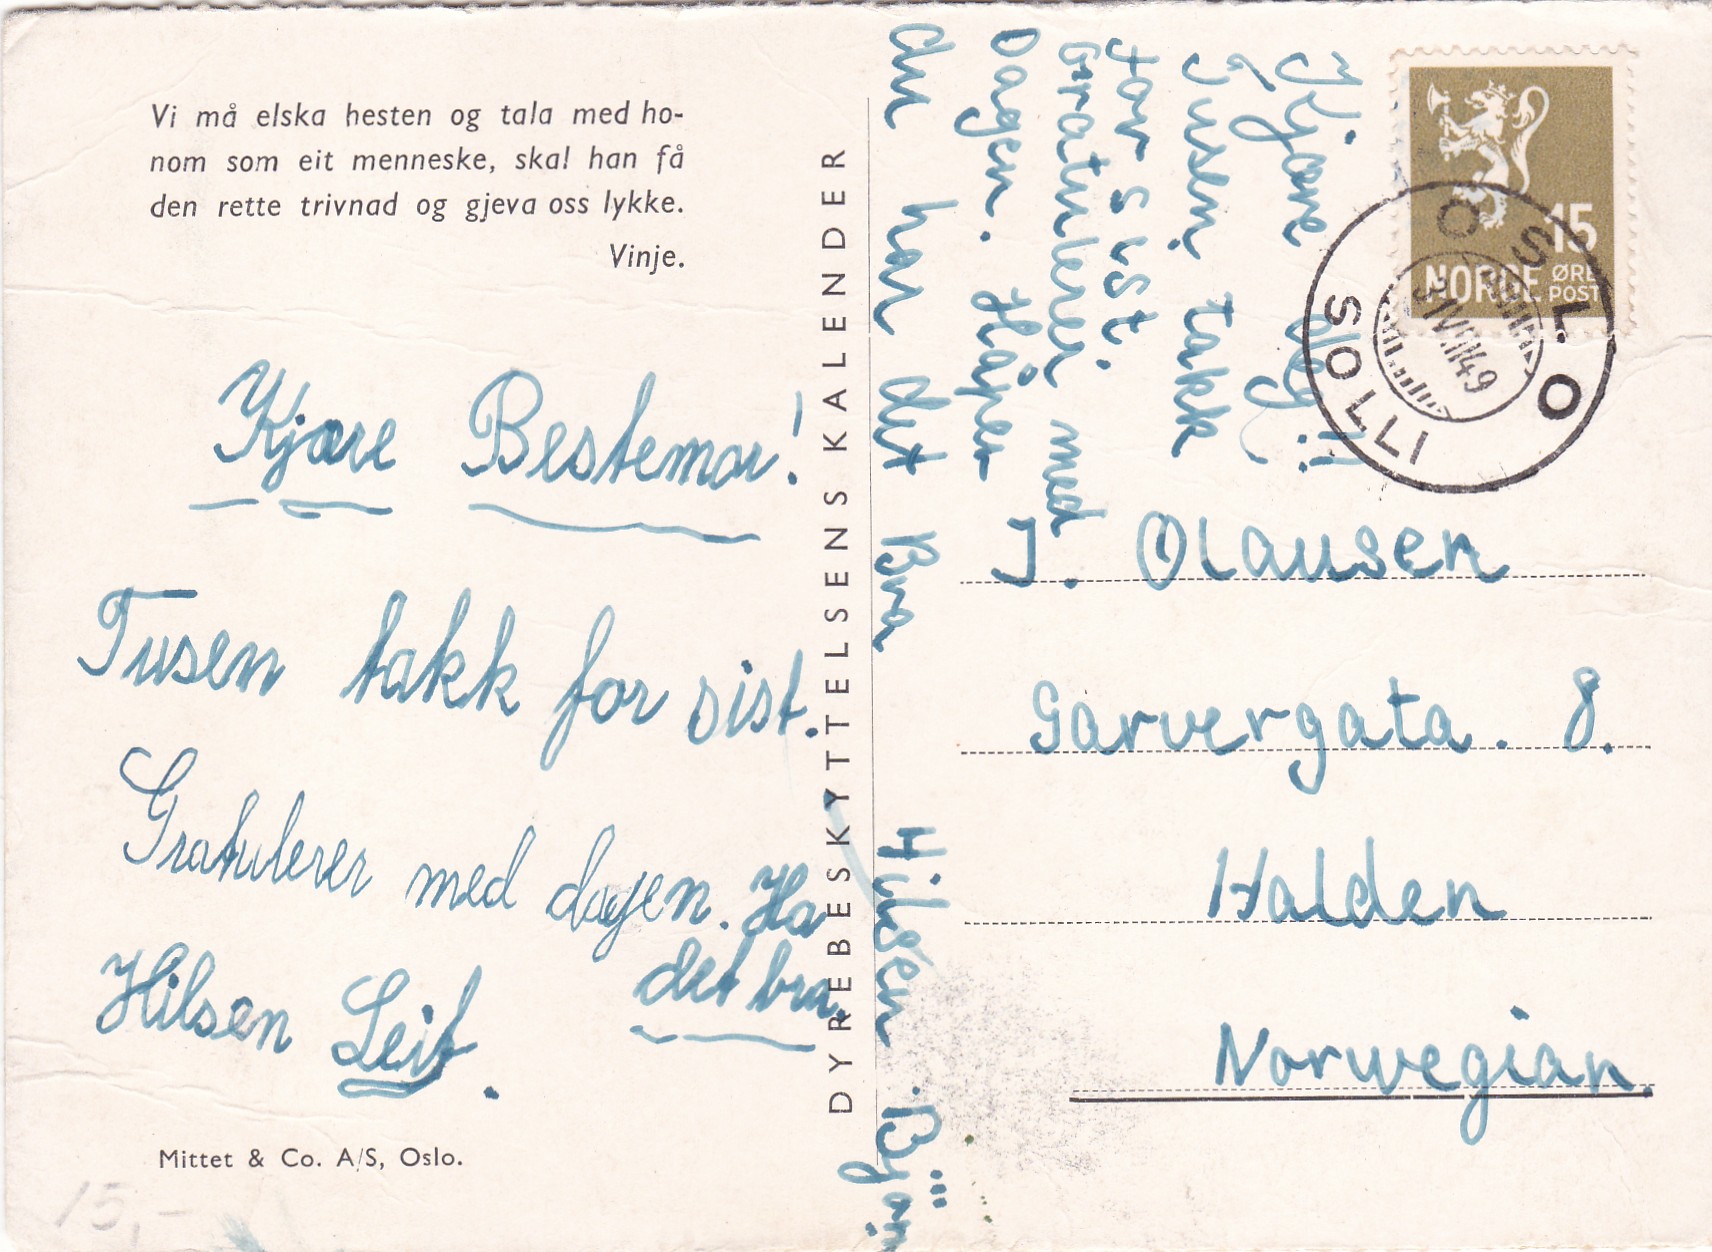 Vi må elska hesten og tala med ho-
nom som eit menneske, skal han få
den rette trivnad og gjeva oss lykke.
Vinje.
Kjære Bestemor!
Tusen takk for sist.
Gratulerer med dagen. Ha
det bra.
Hilsen Leif.
Mittet & Co. A/S, Oslo.
15,-
DYREBESKYTTELSENS KALENDER
Kjære deg!!
Tusen takk
for sist.
Gratulerer med
Dagen. Håper
du har det Bra Hilsen Bjørn
15
NORGE ØRE
POST
OSLO
SOLLI
J. Olausen
Garvergata. 8.
Halden
Norwegian.